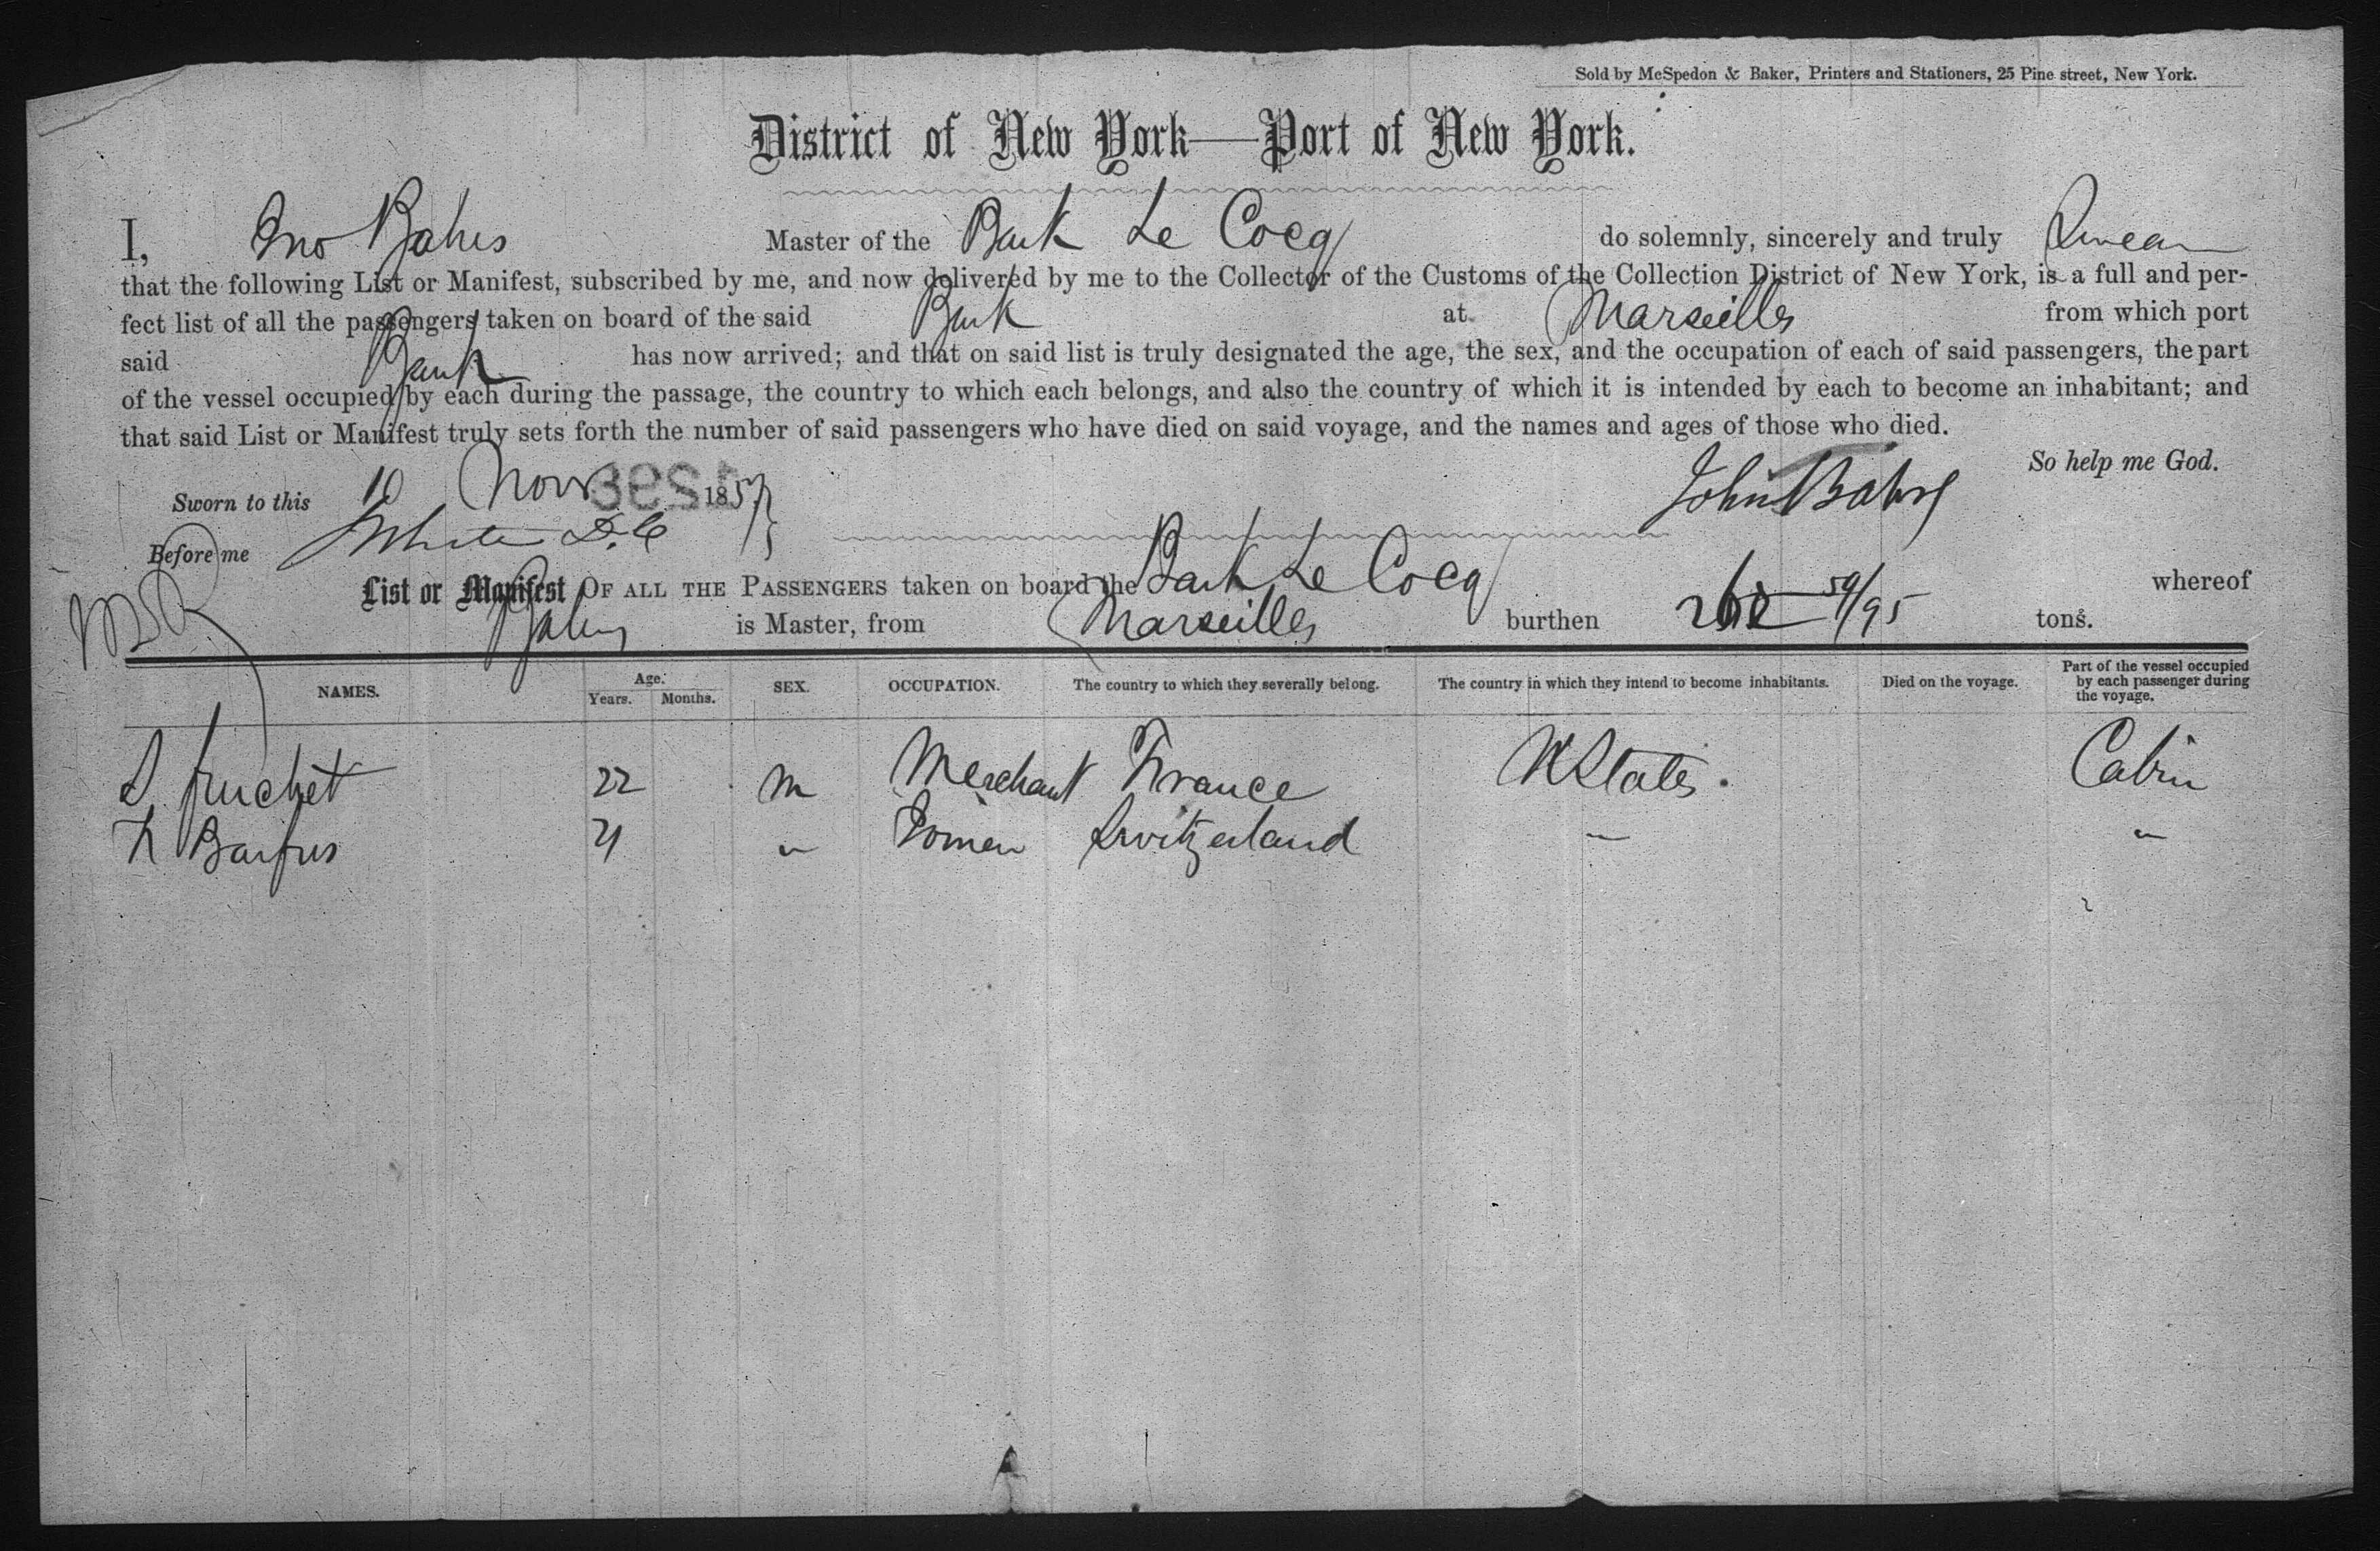 Sold by McSpedon & Baker, Printers and Stationers, 25 Pine street, New York.
District of New York—Port of New York.
I, Jno Bahrs Master of the Bark Le Cocq do solemnly, sincerely and truly Swear
that the following List or Manifest, subscribed by me, and now delivered by me to the Collector of the Customs of the Collection District of New York, is a full and per-
fect list of all the passengers taken on board of the said Bark at Marseilles from which port
said Bark has now arrived; and that on said list is truly designated the age, the sex, and the occupation of each of said passengers, the part
of the vessel occupied by each during the passage, the country to which each belongs, and also the country of which it is intended by each to become an inhabitant; and
that said List or Manifest truly sets forth the number of said passengers who have died on said voyage, and the names and ages of those who died.
So help me God.
Sworn to this 10 Nov 1857 John Bahrs
Before me White D.C
List or Manifest OF ALL THE PASSENGERS taken on board the Bark Le Cocq whereof
Bahrs is Master, from Marseilles burthen 59/95 tons.
NAMES. Age. Years. Months. SEX. OCCUPATION. The country to which they severally belong. The country in which they intend to become inhabitants. Died on the voyage. Part of the vessel occupied by each passenger during the voyage.
22 m Merchant France U States. Cabin
Barfus 21 " Switzerland " "